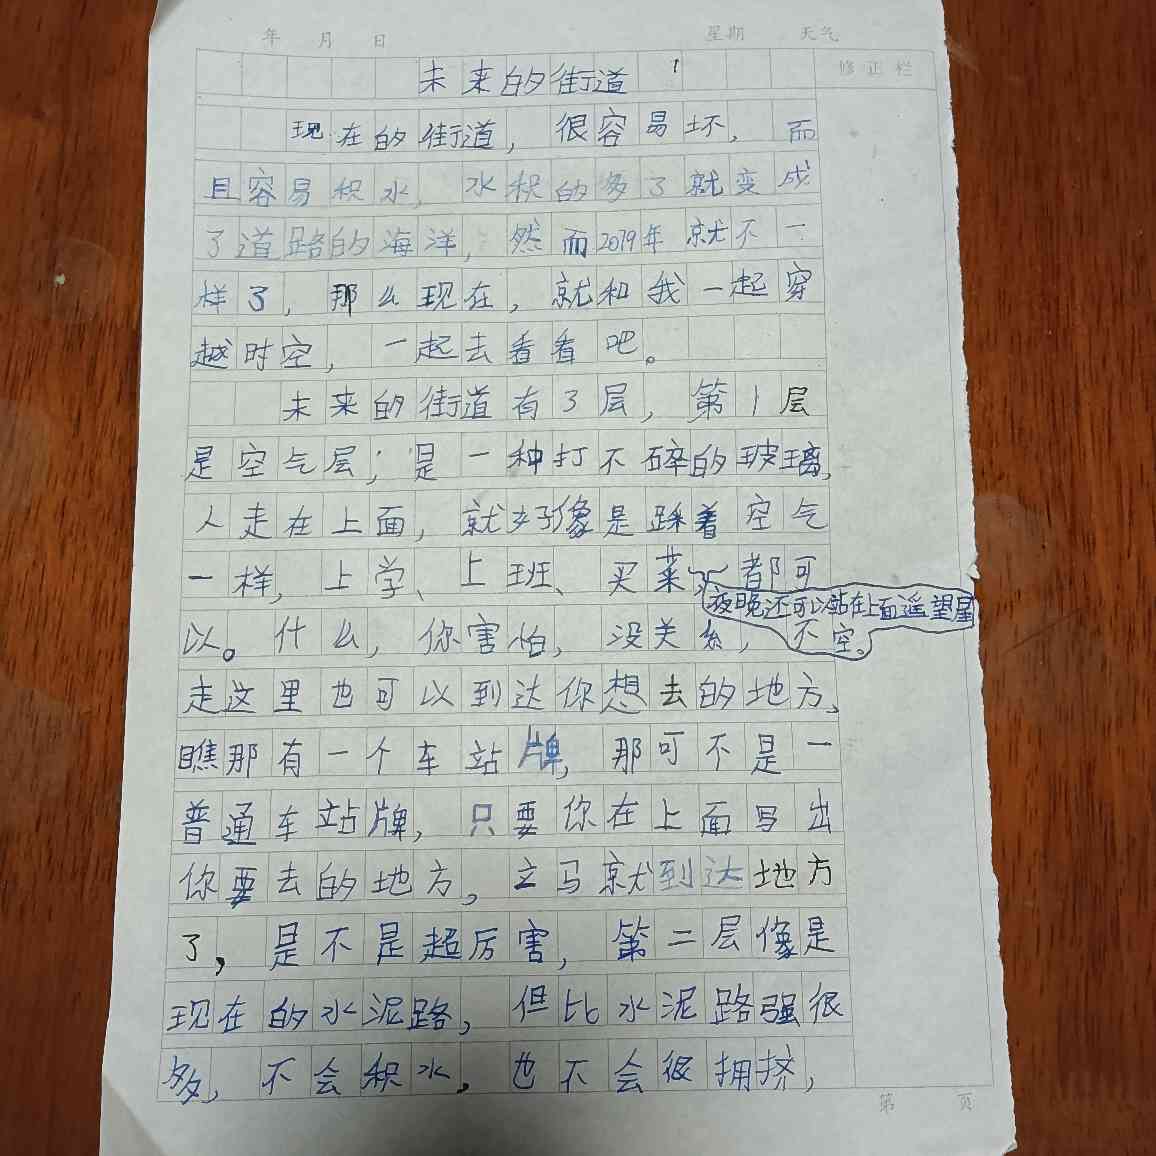 年 月 日 星期 天气
修正栏
未来的街道
现在的街道，很容易坏，而
且容易积水，水积的多了就变成
了道路的海洋，然而2079年就不一
样了，那么现在，就和我一起穿
越时空，一起去看看吧。
未来的街道有3层，第1层
是空气层；是一种打不碎的玻璃，
人走在上面，就好像是踩着空气
一样，上学、上班、买菜都可
夜晚还可以站在上面遥望星
以。什么，你害怕，没关系，
不空。
走这里也可以到达你想去的地方，
瞧那有一个车站牌，那可不是一
普通车站牌，只要你在上面写出
你要去的地方。立马就到达地方
了，是不是超厉害，第二层像是
现在的水泥路，但比水泥路强很
多，不会积水，也不会很拥挤，
第 页